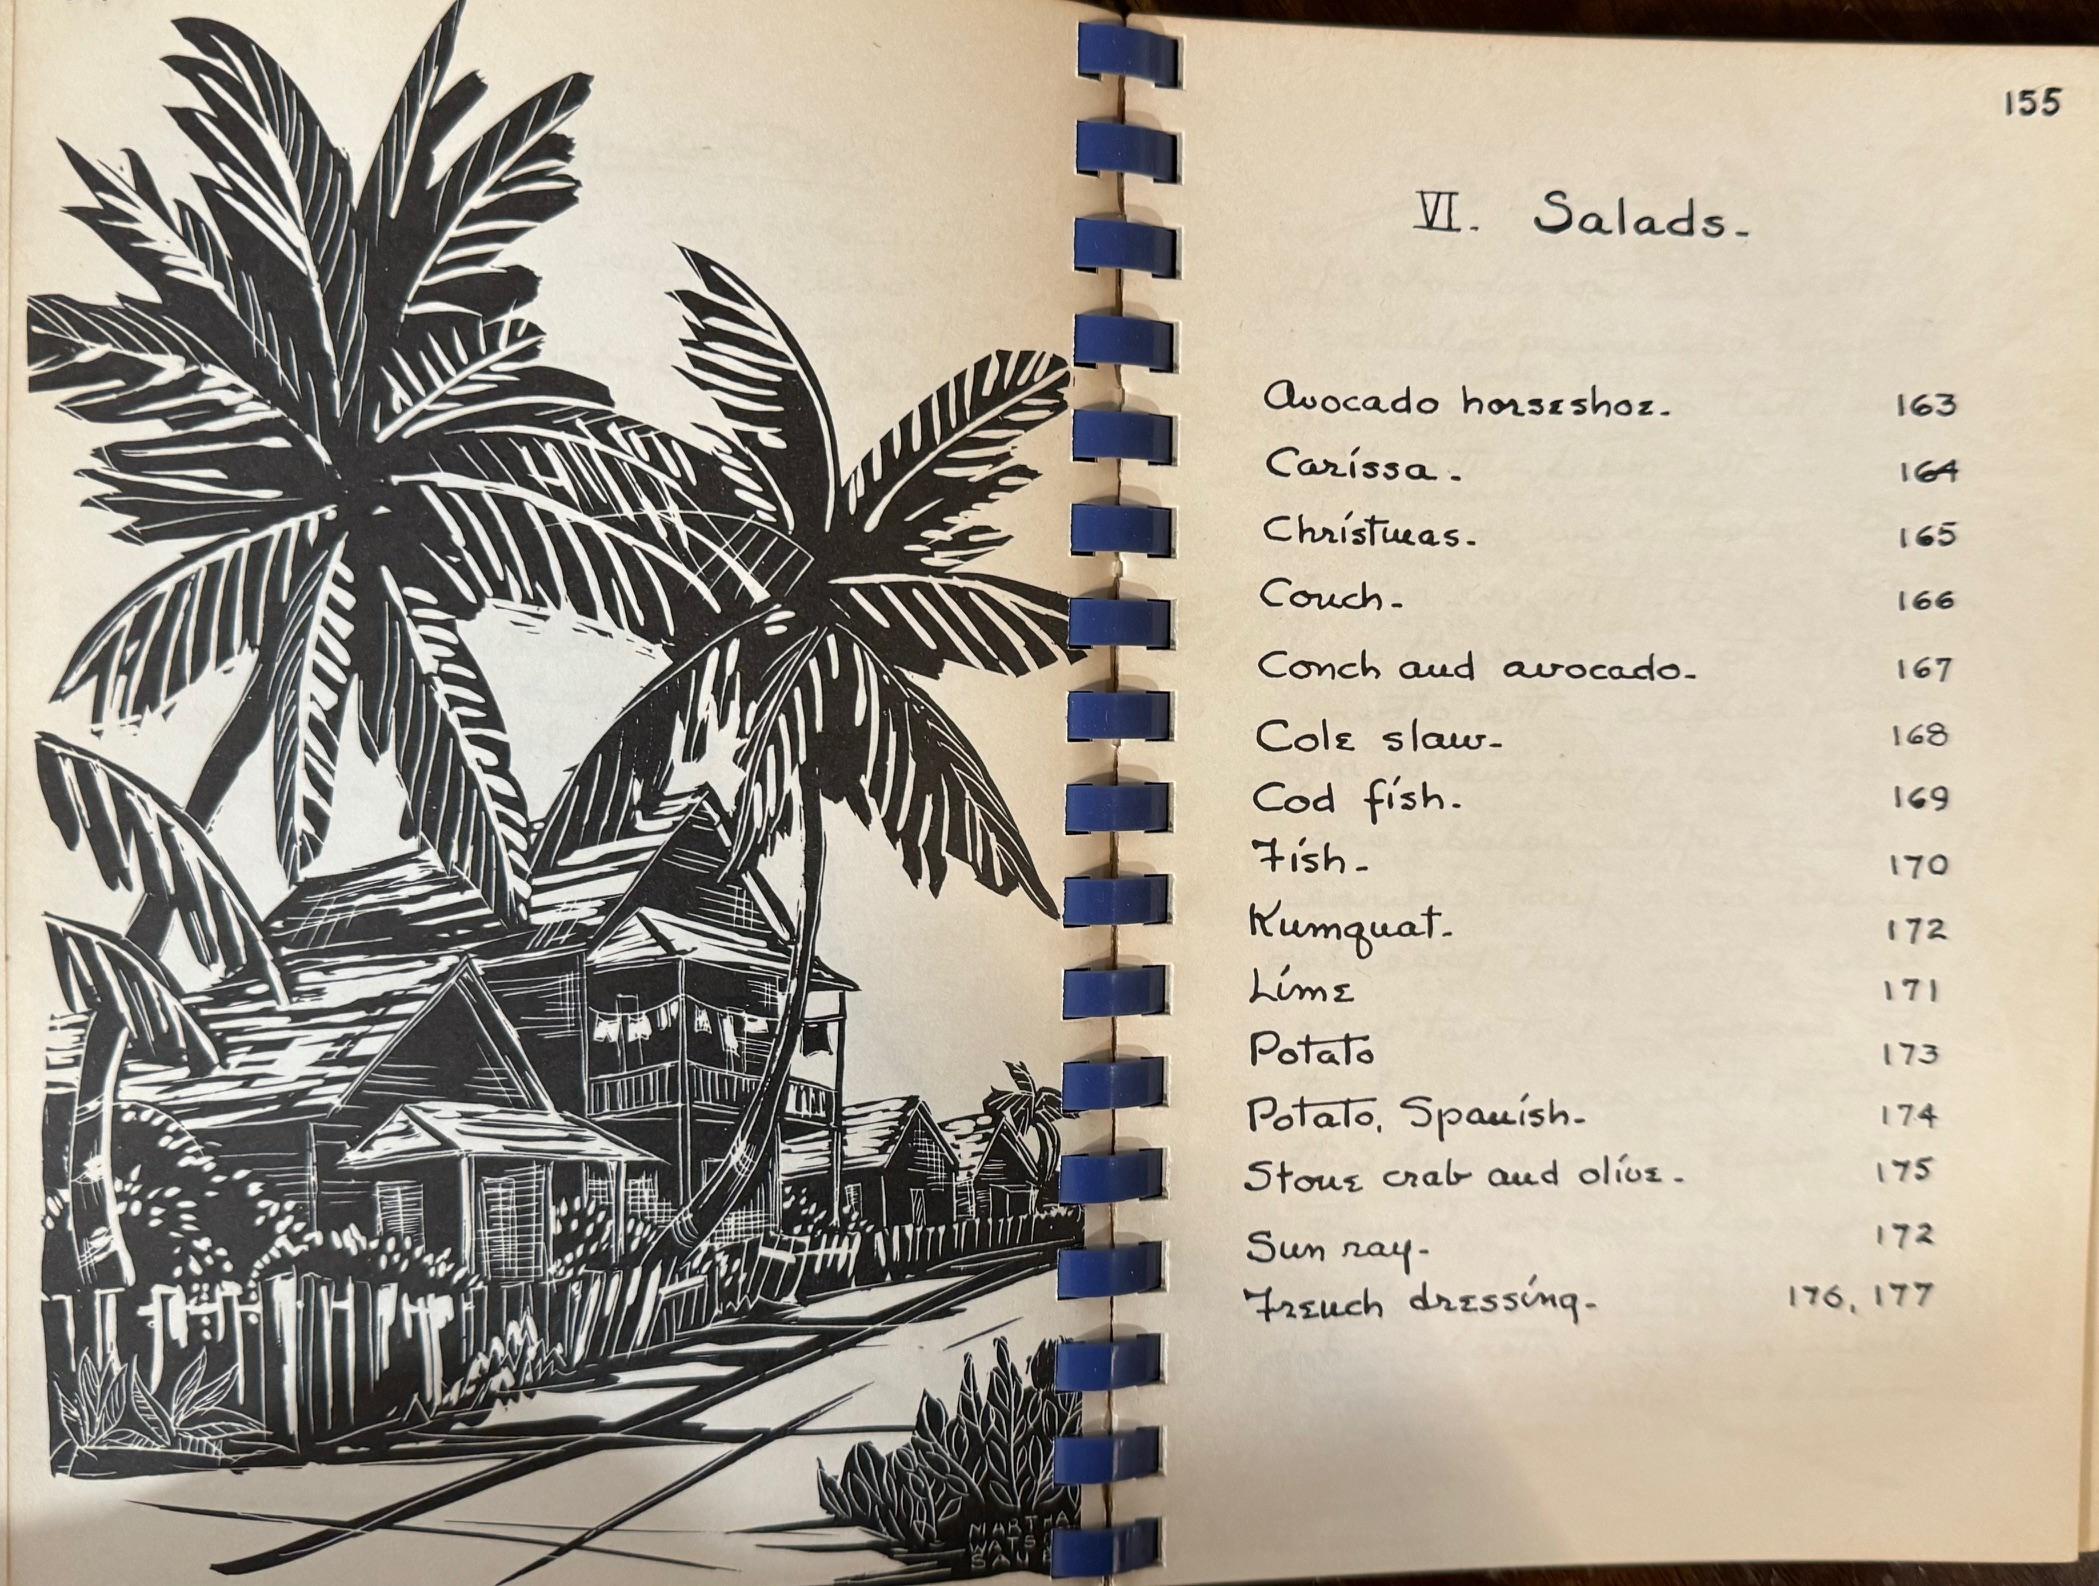 155
VI. Salads.
Avocado horseshoe. 163
Carissa. 164
Christmas. 165
Conch. 166
Conch and avocado. 167
Cole slaw. 168
Cod fish. 169
Fish. 170
Kumquat. 172
Lime 171
Potato 173
Potato, Spanish. 174
Stone crab and olive. 175
Sun ray. 172
French dressing. 176, 177
MARTHA